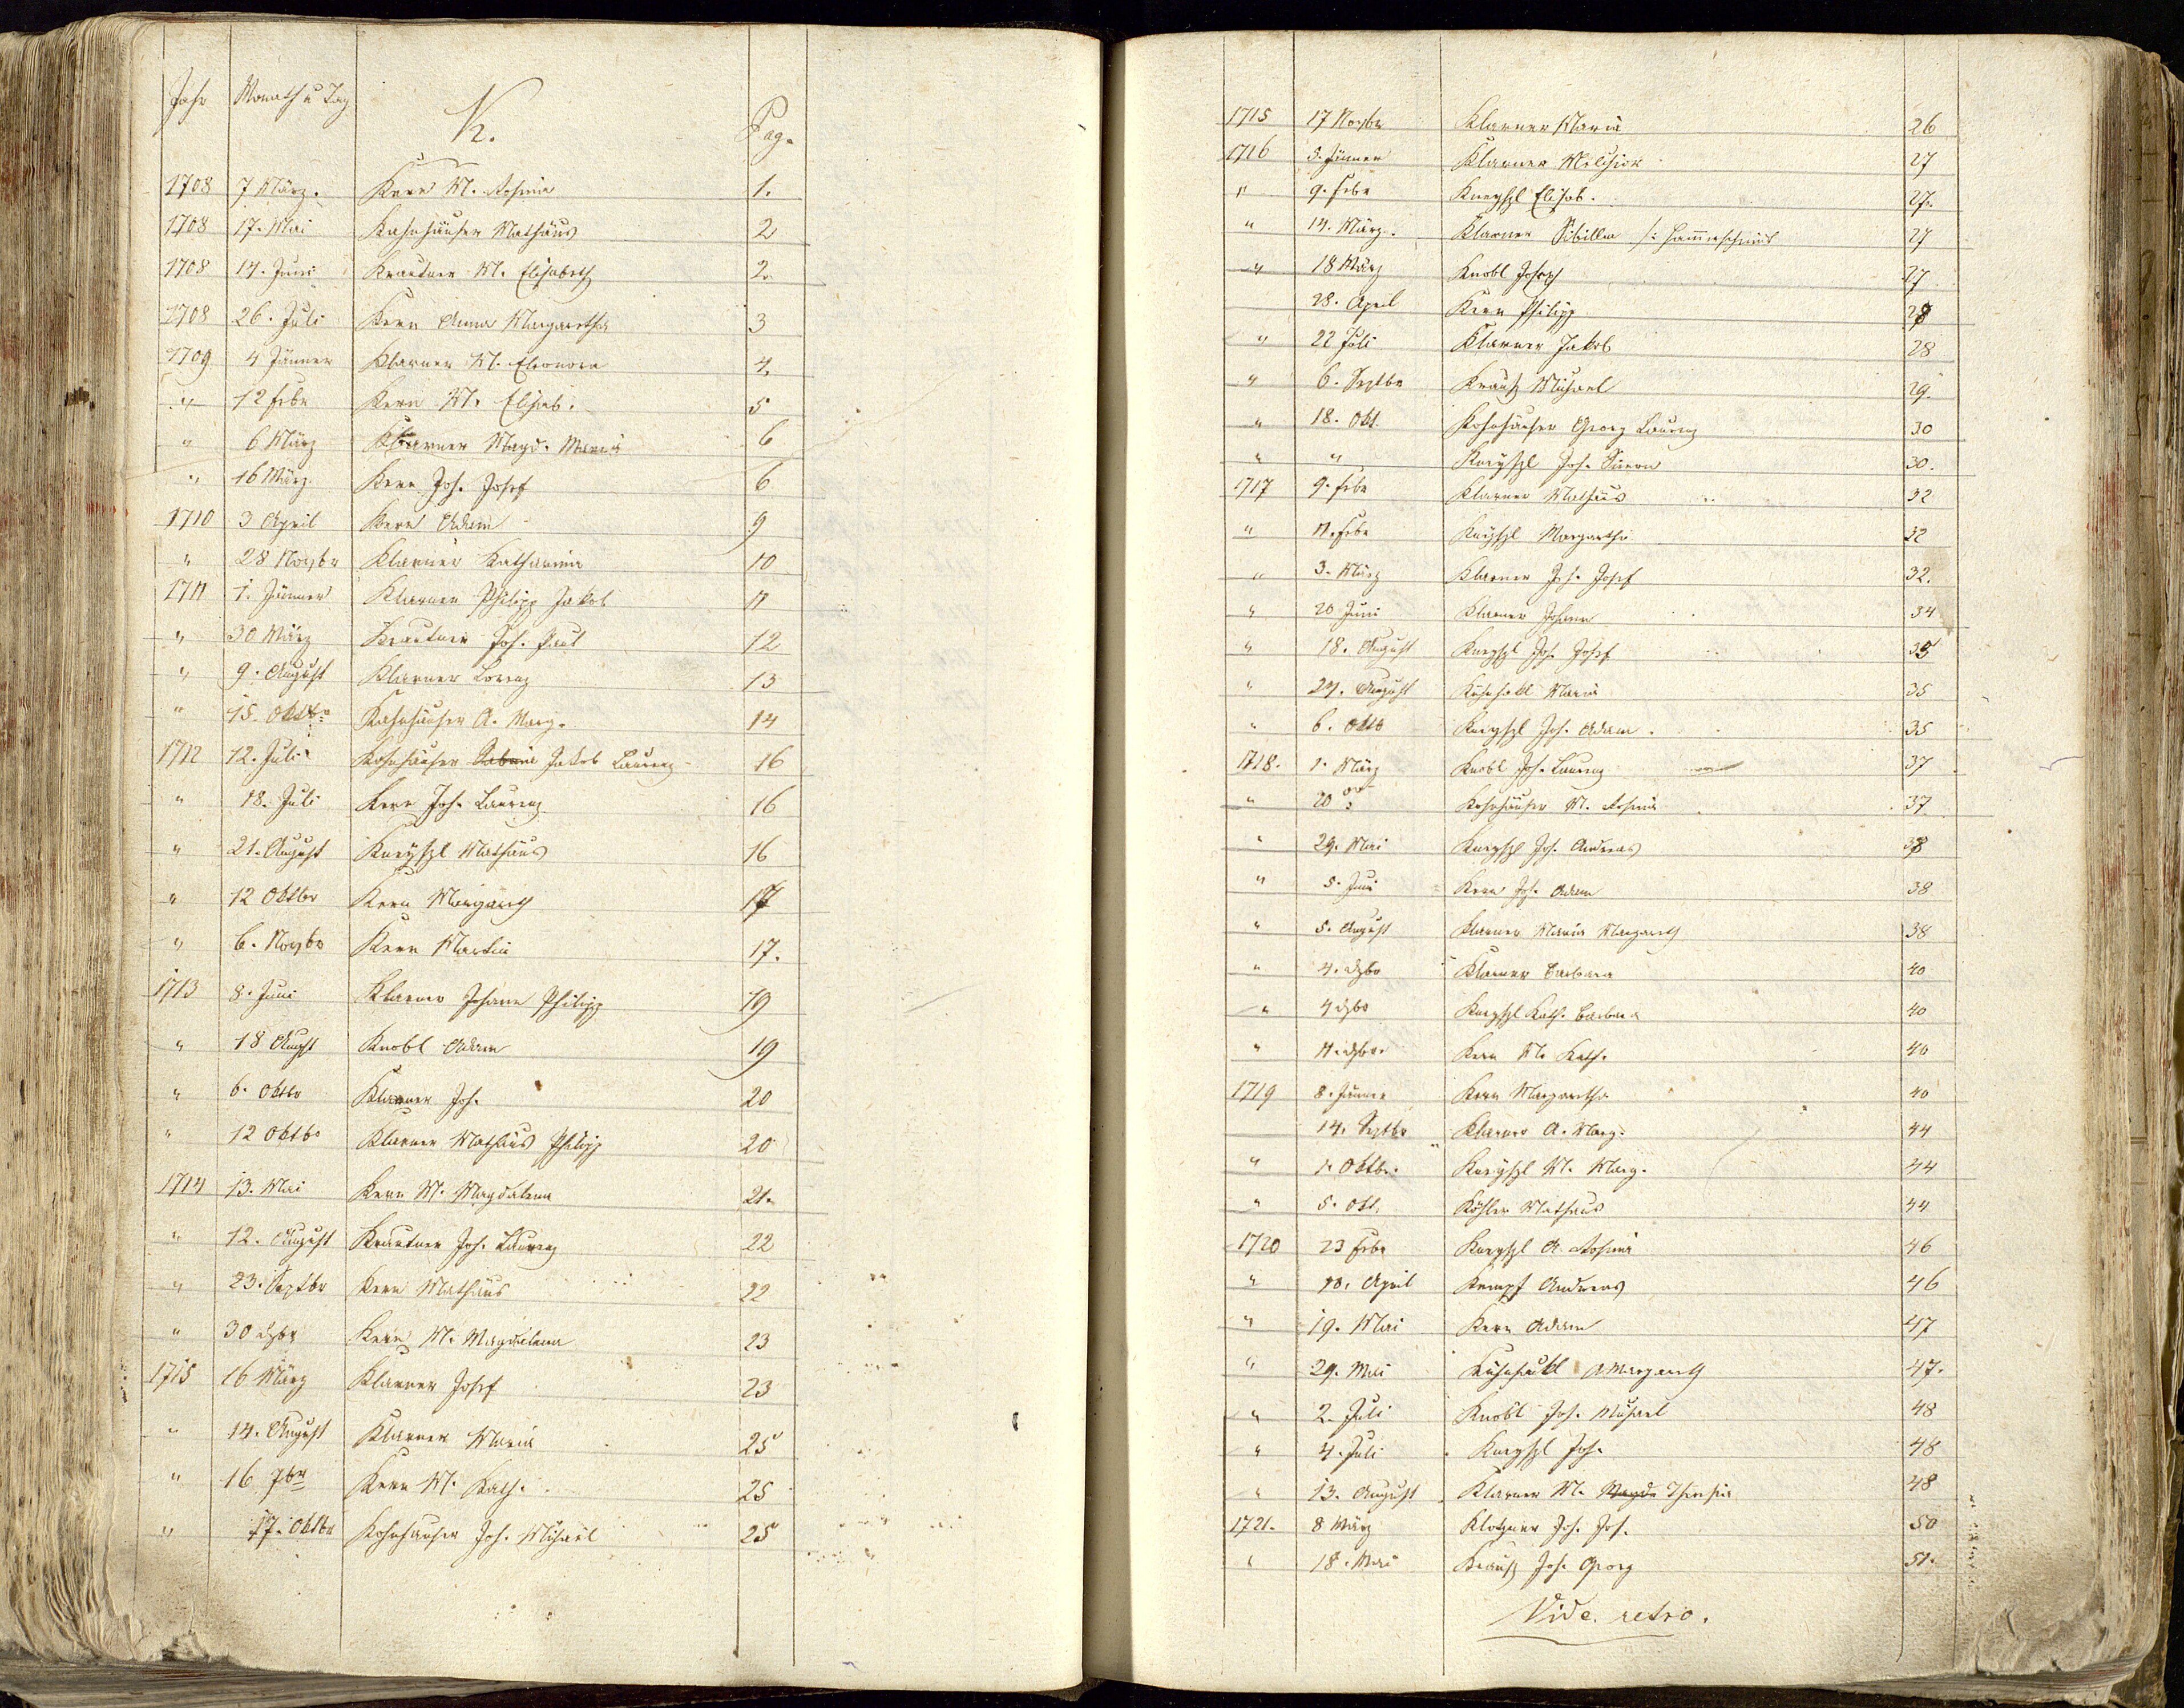 Jahr Monath u Tag K. Pag.
1708 7 März. Kern M. Rosina 1.
1708 17. Mai Kohnhäuser Mathäus 2
1708 14. Juni Krautner M. Elisabeth 2.
1708 26. Juli Kern Anna Margaretha 3
1709 4 Jänner Klarner M. Eleonora 4.
" 12 Febr Kern M. Elisab. 5
" 6 März Klarner Magd. Maria 6
" 16 März. Kern Joh. Josef 6
1710 3 April Kern Adam 9
" 28 Novbr Klarner Katharina 10
1711 1. Jänner Klarner Philipp Jakob 11
" 30 März Krautner Joh. Paul 12
" 9. August Klarner Lorenz 13
" 15. Oktbr Kohnhäuser A. Marg. 14
1712 12. Juli Kohnhäuser Jakob Laurenz 16
" 18. Juli Kern Joh. Laurenz 16
" 21. August Kneyßl Mathäus 16
" 12 Oktbr Kern Margareth 17
" 6. Novbr Kern Martin 17.
1713 8. Juni Klarner Johann Philipp 19
" 18 August Knobl Adam 19
" 6. Oktbr Klarner Joh. 20
" 12 Oktbr Klarner Mathäus Philipp 20
1714 13. Mai Kern M. Magdalena 21.
" 12. August Krautner Joh. Laurenz 22
" 23. Septbr Kern Mathäus 22
" 30 Dzbr Kern M. Magdalena 23
1715 16 März Klarner Josef 23
" 14. August Klarner Maria 25
" 16 7br Kern M. Kath. 25
" 17. Oktbr Kohnhäuser Joh. Michael 25
1715 17 Novbr Klarner Maria 26
1716 5. Jänner Klarner Melchior 27
" 9. Febr Kneyßl Elisab. 27.
" 14. März. Klarner Sibilla /: Hammerschmid 27
" 18 März Knobl Joseph 27
28. April Kern Philipp 28
" 22 Juli Klarner Jakob 28
" 6. Septbr Krauß Michael 29.
" 18. Okt. Kohnhäuser Georg Laurenz 30
" " Kneyßl Joh. Simon 30.
1717 9. Febr Klarner Mathäus 32
" 11. Febr Kneyßl Margaretha 32
" 3. März Klarner Joh. Josef 32.
" 20 Juni Klarner Johann 34
" 18. August Kneyßl Joh. Josef 35
" 24. August Kühhakl Maria 35
" 6. Oktb Kneyßl Joh. Adam. 35
1718. 1. März Knobl Joh. Laurenz 37
" 20 Kohnhäuser M. Rosina 37.
" 29. Mai Kneyßl Joh. Andreas 38
" 5. Juni Kern Joh. Adam 38
" 5. August Klarner Maria Margareth 38
" 4. Dzbr Klarner Barbara 40
" 4 Dzbr Kneyßl Kath. Barbara 40
" 11. Dzbr. Kern M. Kath. 40
1719 8. Jänner Kern Margaretha 40
14. Septbr Klarner A. Marg. 44
" 1. Oktbr. Kneyßl M. Marg. 44
" 5. Okt. Köhler Mathäus 44
1720 23 Febr Kneyßl A. Rosina 46
" 10. April Kempf Andreas 46
" 19. Mai Kern Adam 47
" 29. Mai Kühhakl A Margareth 47.
" 2. Juli Knobl Joh. Michael 48
" 4. Juli Kneyßl Joh. 48
" 13. August Klarner M. Magd. Theresia 48
1721. 8 März Klotzner Joh. Jos. 50
" 18. Mai Krauß Joh. Georg 51.
Vide retro.